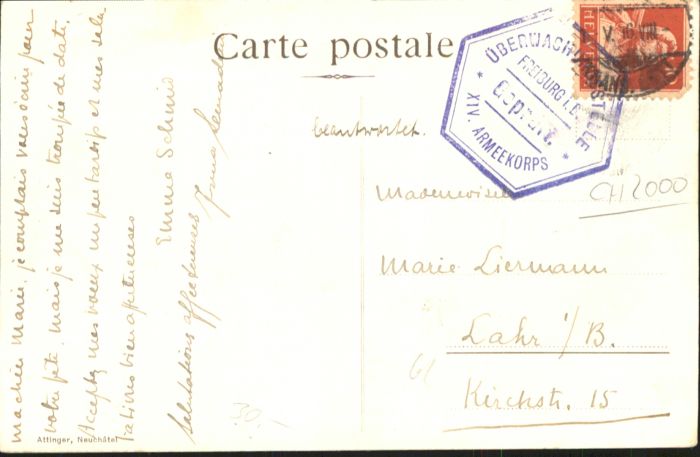 Carte postale
ÜBERWACHUNGSSTELLE
FREIBURG I. B.
Geprüft.
* XIV. ARMEEKORPS *
V. 16 VIII
HELVETIA
beantwortet.
CH 2000
Mademoiselle
Marie Liermann
Lahr i/B.
Kirchstr. 15
61
30.-
ma chère Marie, je comptais vous écrire pour
votre fête, mais je me suis trompée de date.
Acceptez mes vœux un peu tardifs et mes salu
tations bien affectueuses
Emma Schmid
Salutations affectueuses
Attinger, Neuchâtel